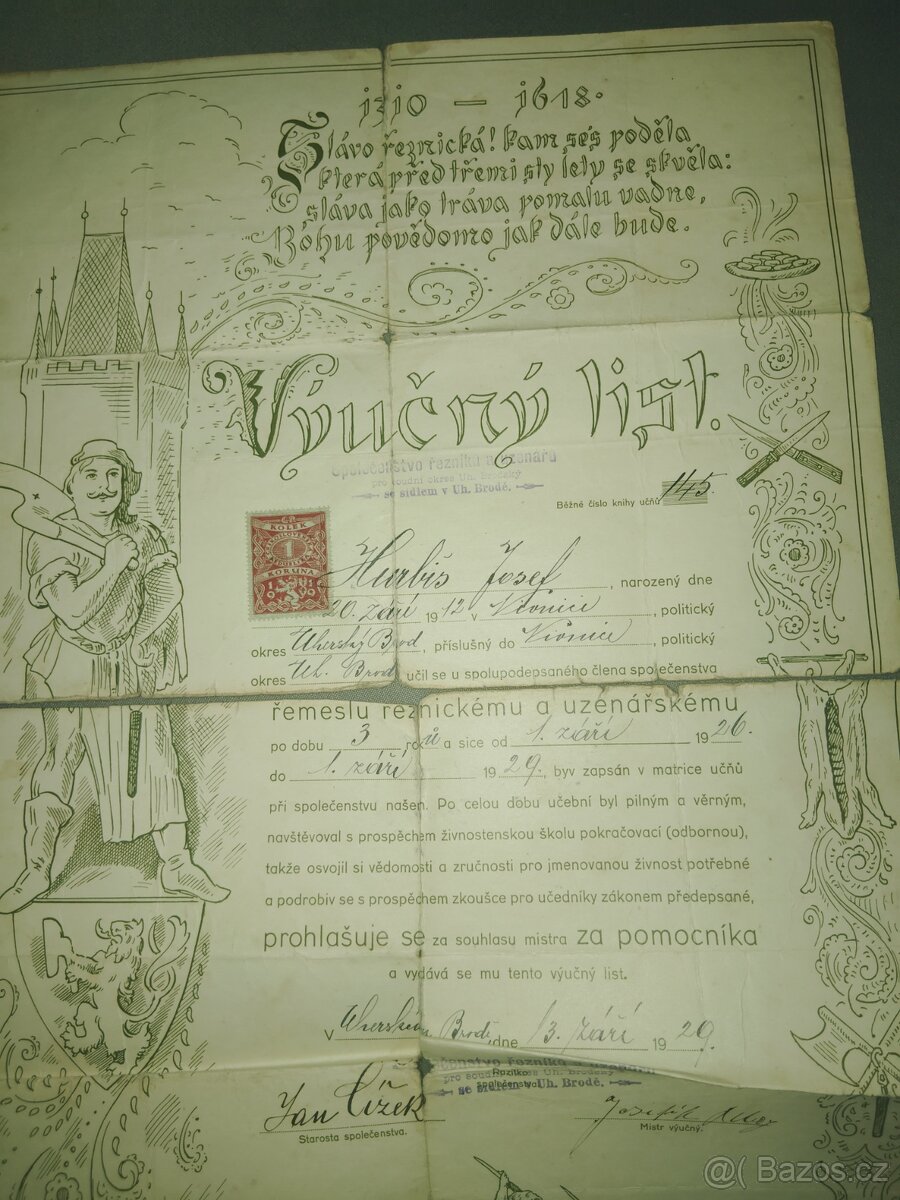 1310 — 1618.
Slávo řeznická! kam ses poděla
která před třemi sty lety se skvěla:
sláva jako tráva pomalu vadne,
Bohu povědomo jak dále bude.
Výučný list.
Společenstvo řezníků a uzenářů
pro soudní okres Uh. Brodský
se sídlem v Uh. Brodě.
Běžné číslo knihy učňů 145.
KOLEK
1
KORUNA
1919
Josef, narozený dne
20. září 1912 v, politický
okres Uherský Brod, příslušný do, politický
okres Uh. Brod učil se u spolupodepsaného člena společenstva
řemeslu řeznickému a uzenářskému
po dobu 3 roků a sice od 1. září 1926.
do 1. září 1929, byv zapsán v matrice učňů
při společenstvu našen. Po celou dobu učební byl pilným a věrným,
navštěvoval s prospěchem živnostenskou školu pokračovací (odbornou),
takže osvojil si vědomosti a zručnosti pro jmenovanou živnost potřebné
a podrobiv se s prospěchem zkoušce pro učedníky zákonem předepsané,
prohlašuje se za souhlasu mistra za pomocníka
a vydává se mu tento výučný list.
V Uherském Brodě dne 13. září 1929.
Společenstvo řezníků a uzenářů
pro soudní okres Uh. Brodský
se sídlem v Uh. Brodě.
Razítko
společenstva.
Jan Čížek
Starosta společenstva.
Mistr výučný.
@( Bazos.cz